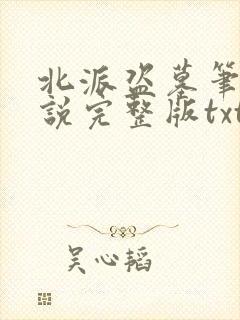 北派盗墓筆
說完整版txt
吴心韬